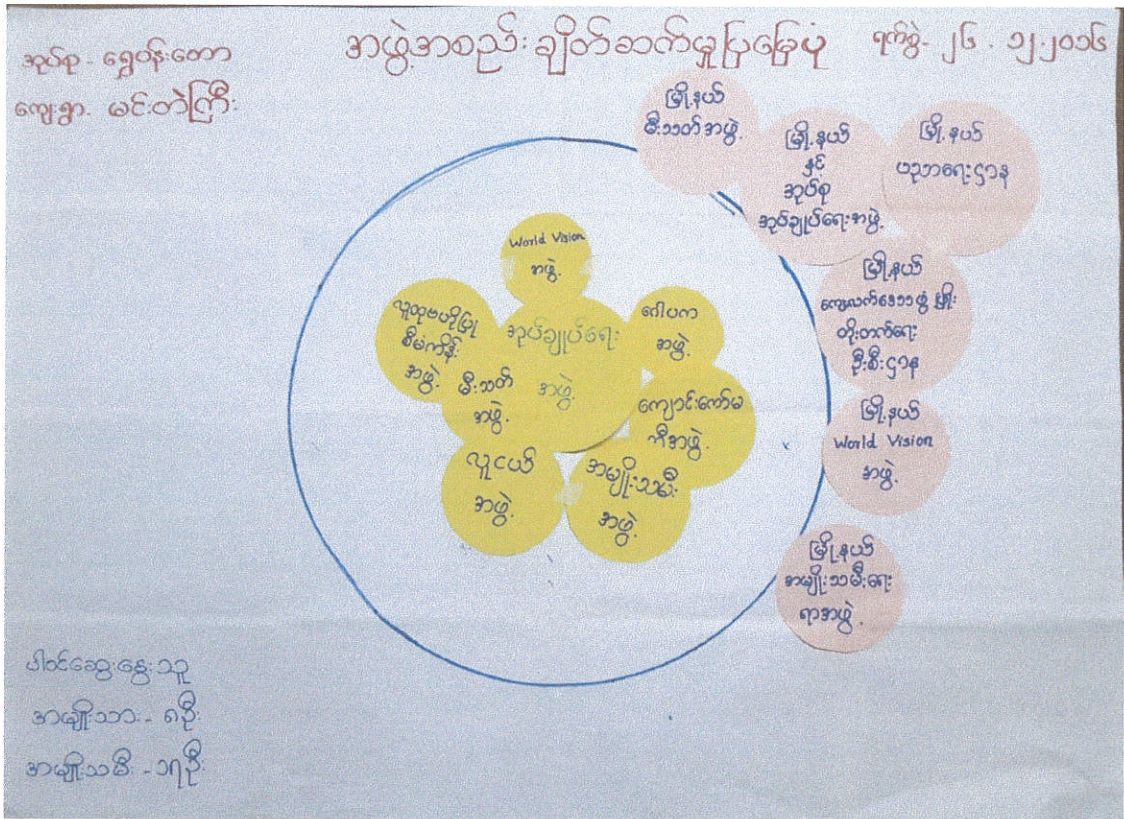 အုပ်စု - ရွှေပန်းတော
ကျေးရွာ - မင်းတဲကြီး
အဖွဲ့အစည်းချိတ်ဆက်မှုပြမြေပုံ
ရက်စွဲ - ၂၆.၁၂.၂၀၁၆
မြို့နယ်
မီးသတ်အဖွဲ့
မြို့နယ်
နှင့်
အုပ်စု
အုပ်ချုပ်ရေးအဖွဲ့
မြို့နယ်
ပညာရေးဌာန
မြို့နယ်
ကျေးလက်ဒေသဖွံ့ဖြိုး
တိုးတက်ရေး
ဦးစီးဌာန
မြို့နယ်
World Vision
အဖွဲ့
မြို့နယ်
အမျိုးသမီးရေး
ရာအဖွဲ့
World Vision
အဖွဲ့
လူထုဗဟိုပြု
စီမံကိန်း
အဖွဲ့
အုပ်ချုပ်ရေး
အဖွဲ့
ဂေါပက
အဖွဲ့
မီးသတ်
အဖွဲ့
ကျောင်းကော်မ
တီအဖွဲ့
လူငယ်
အဖွဲ့
အမျိုးသမီး
အဖွဲ့
ပါဝင်ဆွေးနွေးသူ
အမျိုးသား - ၈ဦး
အမျိုးသမီး - ၁၅ဦး